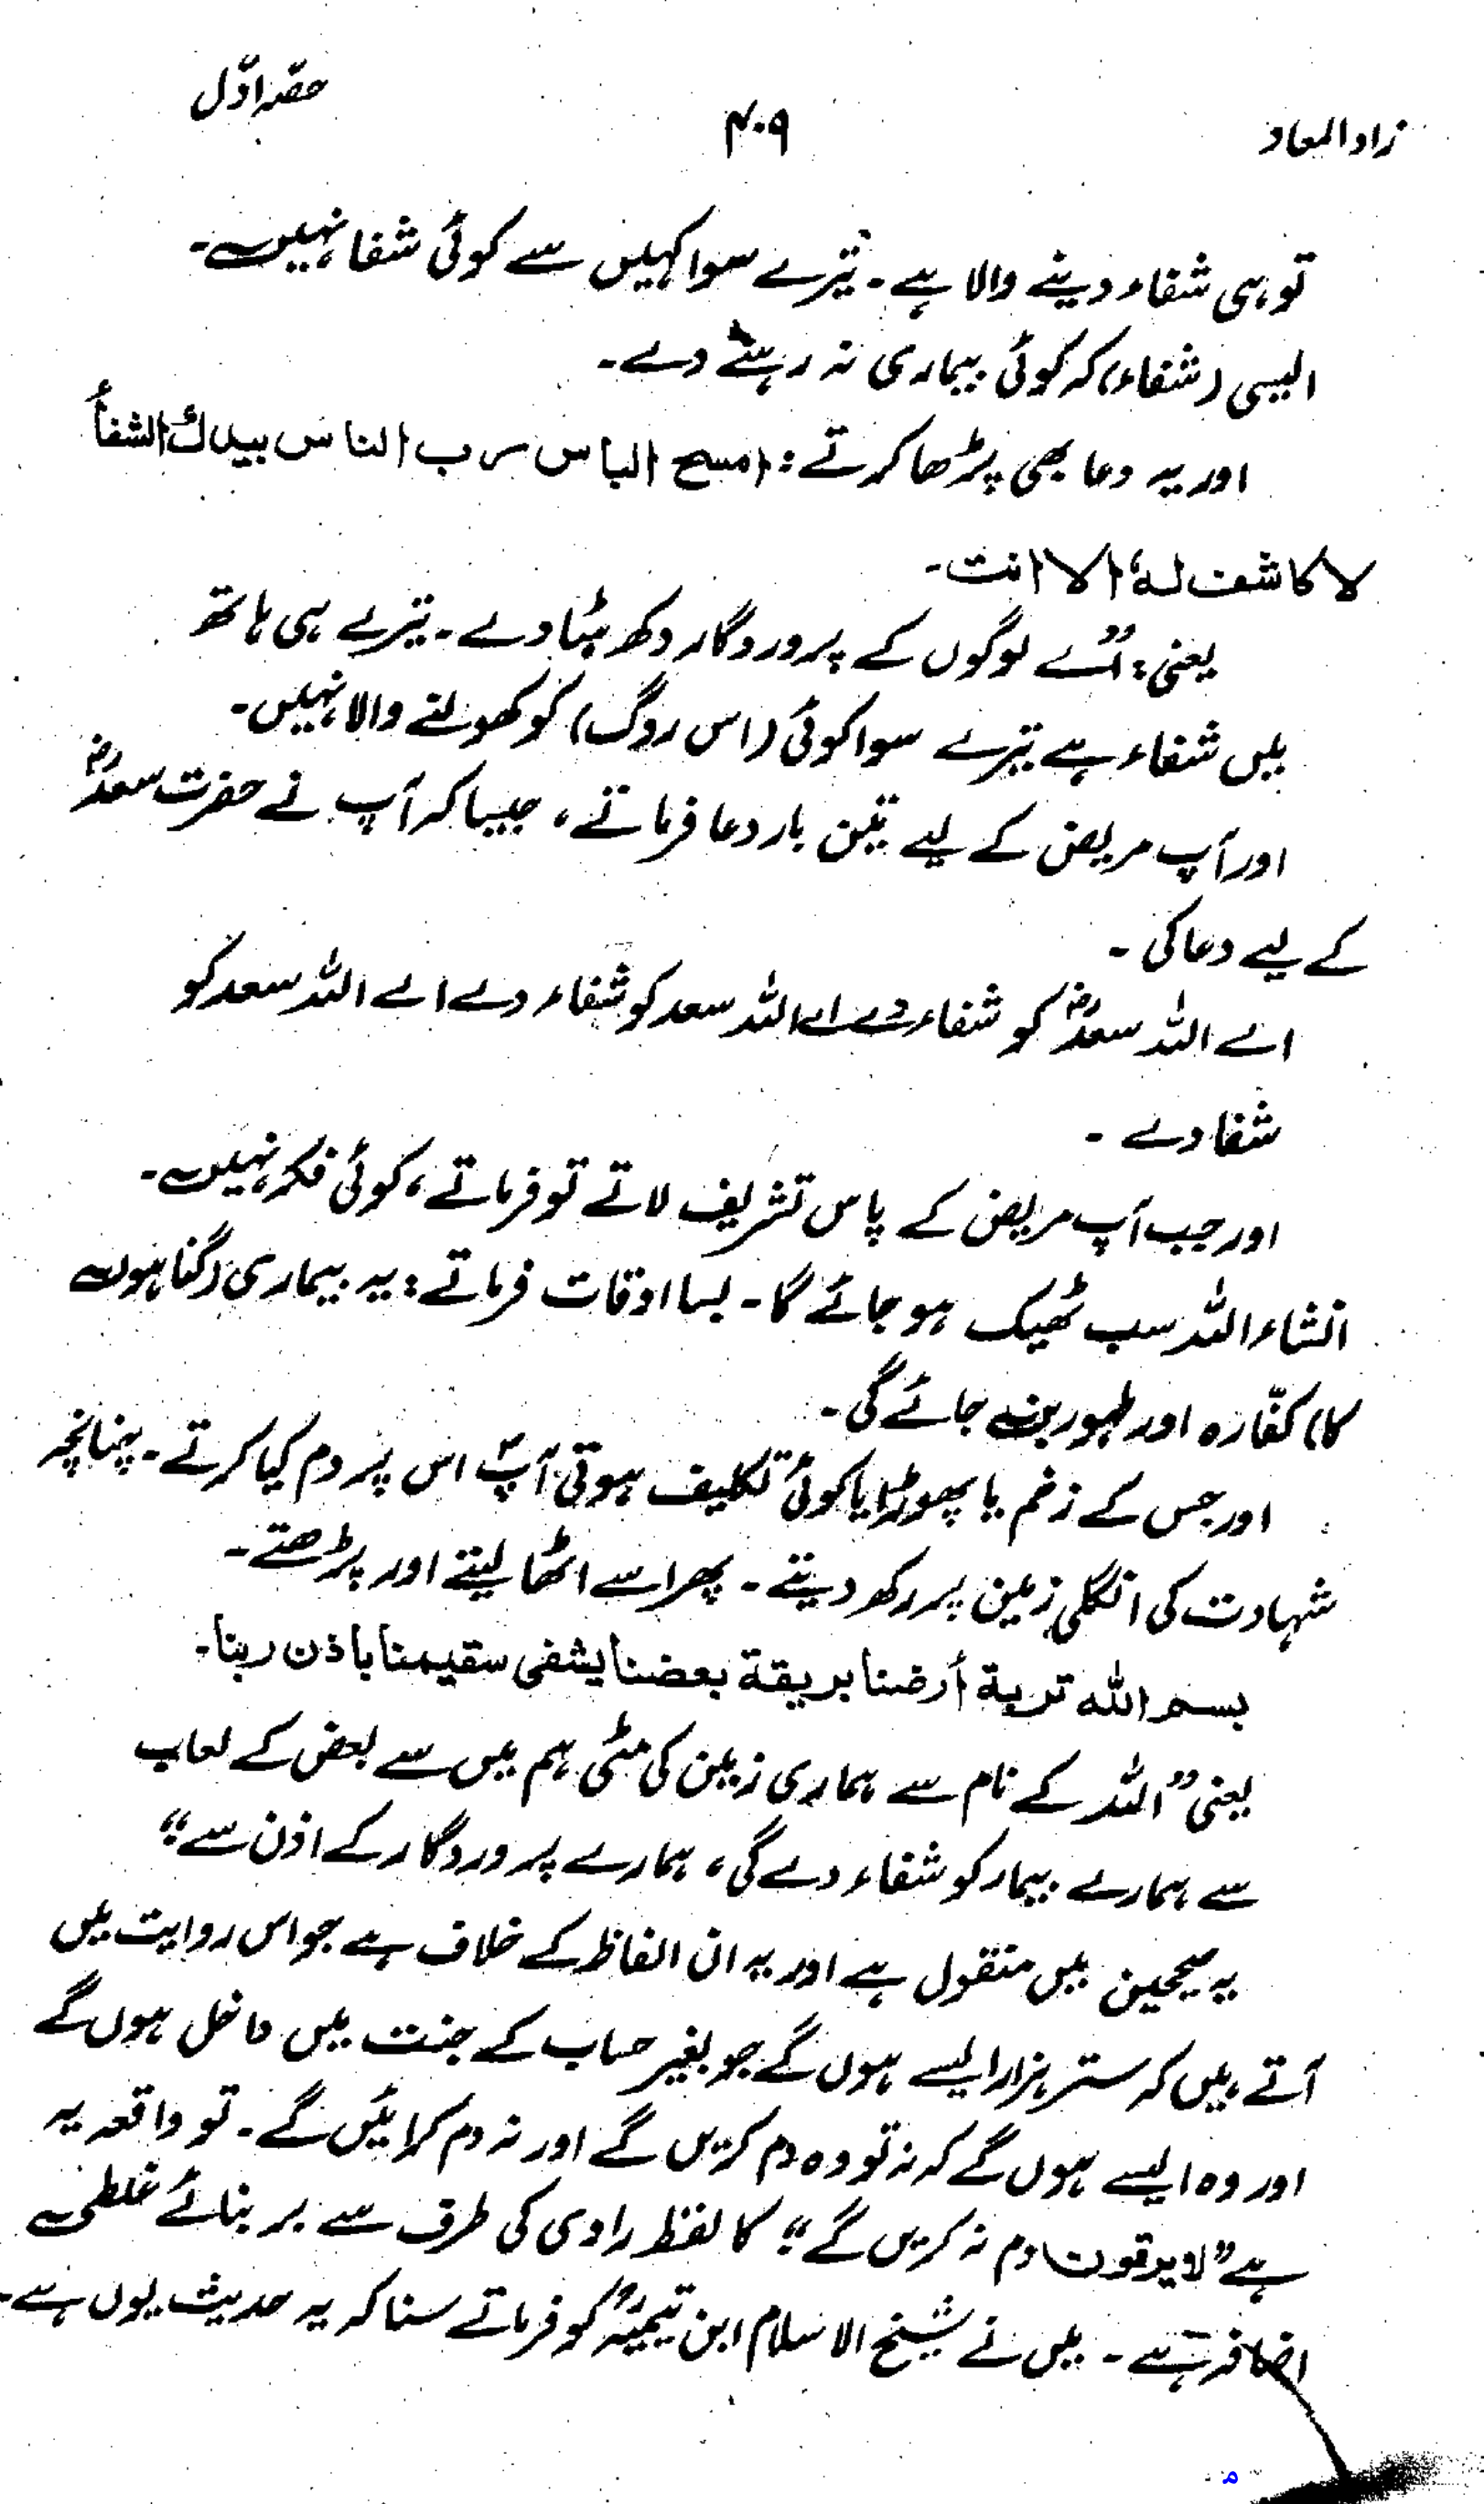 زاد المعاد ۴۰۹ حصہ اوّل
تو ہی شفاء دینے والا ہے۔ تیرے سوا کہیں سے کوئی شفا نہیں۔
ایسی (شفاء) کہ کوئی بیماری نہ رہنے دے۔
اور یہ دعا بھی پڑھا کرتے: امسح الباس رب الناس بیدك الشفاُ
لا كاشف لهٗ الا انت۔
یعنی: اُے لوگوں کے پروردگار دکھ مٹا دے۔ تیرے ہی ہاتھ
میں شفاء ہے تیرے سوا کوئی (اس روگ) کو کھولنے والا نہیں۔
اور آپ مریض کے لیے تین بار دعا فرماتے، جیسا کہ آپ نے حضرت سعدؓ
کے لیے دعا کی۔
اے اللہ سعدؓ کو شفاء دے اے اللہ سعد کو شفاء دے اے اللہ سعد کو
شفا دے۔
اور جب آپ مریض کے پاس تشریف لاتے تو فرماتے، کوئی فکر نہیں۔
انشاء اللہ سب ٹھیک ہو جائے گا۔ بسا اوقات فرماتے: یہ بیماری (گناہوں
کا) کفّارہ اور طہور بن جائے گی۔
اور جس کے زخم یا پھوڑا یا کوئی تکلیف ہوتی آپؐ اس پر دم کیا کرتے۔ چنانچہ
شہادت کی انگلی زمین پر رکھ دیتے۔ پھر اسے اٹھا لیتے اور پڑھتے۔
بسم الله تربة أرضنا بريقة بعضنا يشفى سقيمنا باذن ربنا۔
یعنی ”اللہ کے نام سے ہماری زمین کی مٹی ہم میں سے بعض کے لعاب
سے ہمارے بیمار کو شفاء دے گی، ہمارے پروردگار کے اذن سے“
یہ صحیحین میں منقول ہے اور یہ ان الفاظ کے خلاف ہے جو اس روایت میں
آتے ہیں کہ ستر ہزار ایسے ہوں گے جو بغیر حساب کے جنت میں داخل ہوں گے
اور وہ ایسے ہوں گے کہ نہ تو وہ دم کریں گے اور نہ دم کرائیں گے۔ تو واقعہ یہ
ہے ”لا یرقون دم نہ کریں گے“ کا لفظ راوی کی طرف سے بر بنائے غلطی
اضافہ ہے۔ میں نے شیخ الاسلام ابن تیمیہؒ کو فرماتے سنا کہ یہ حدیث یوں ہے۔